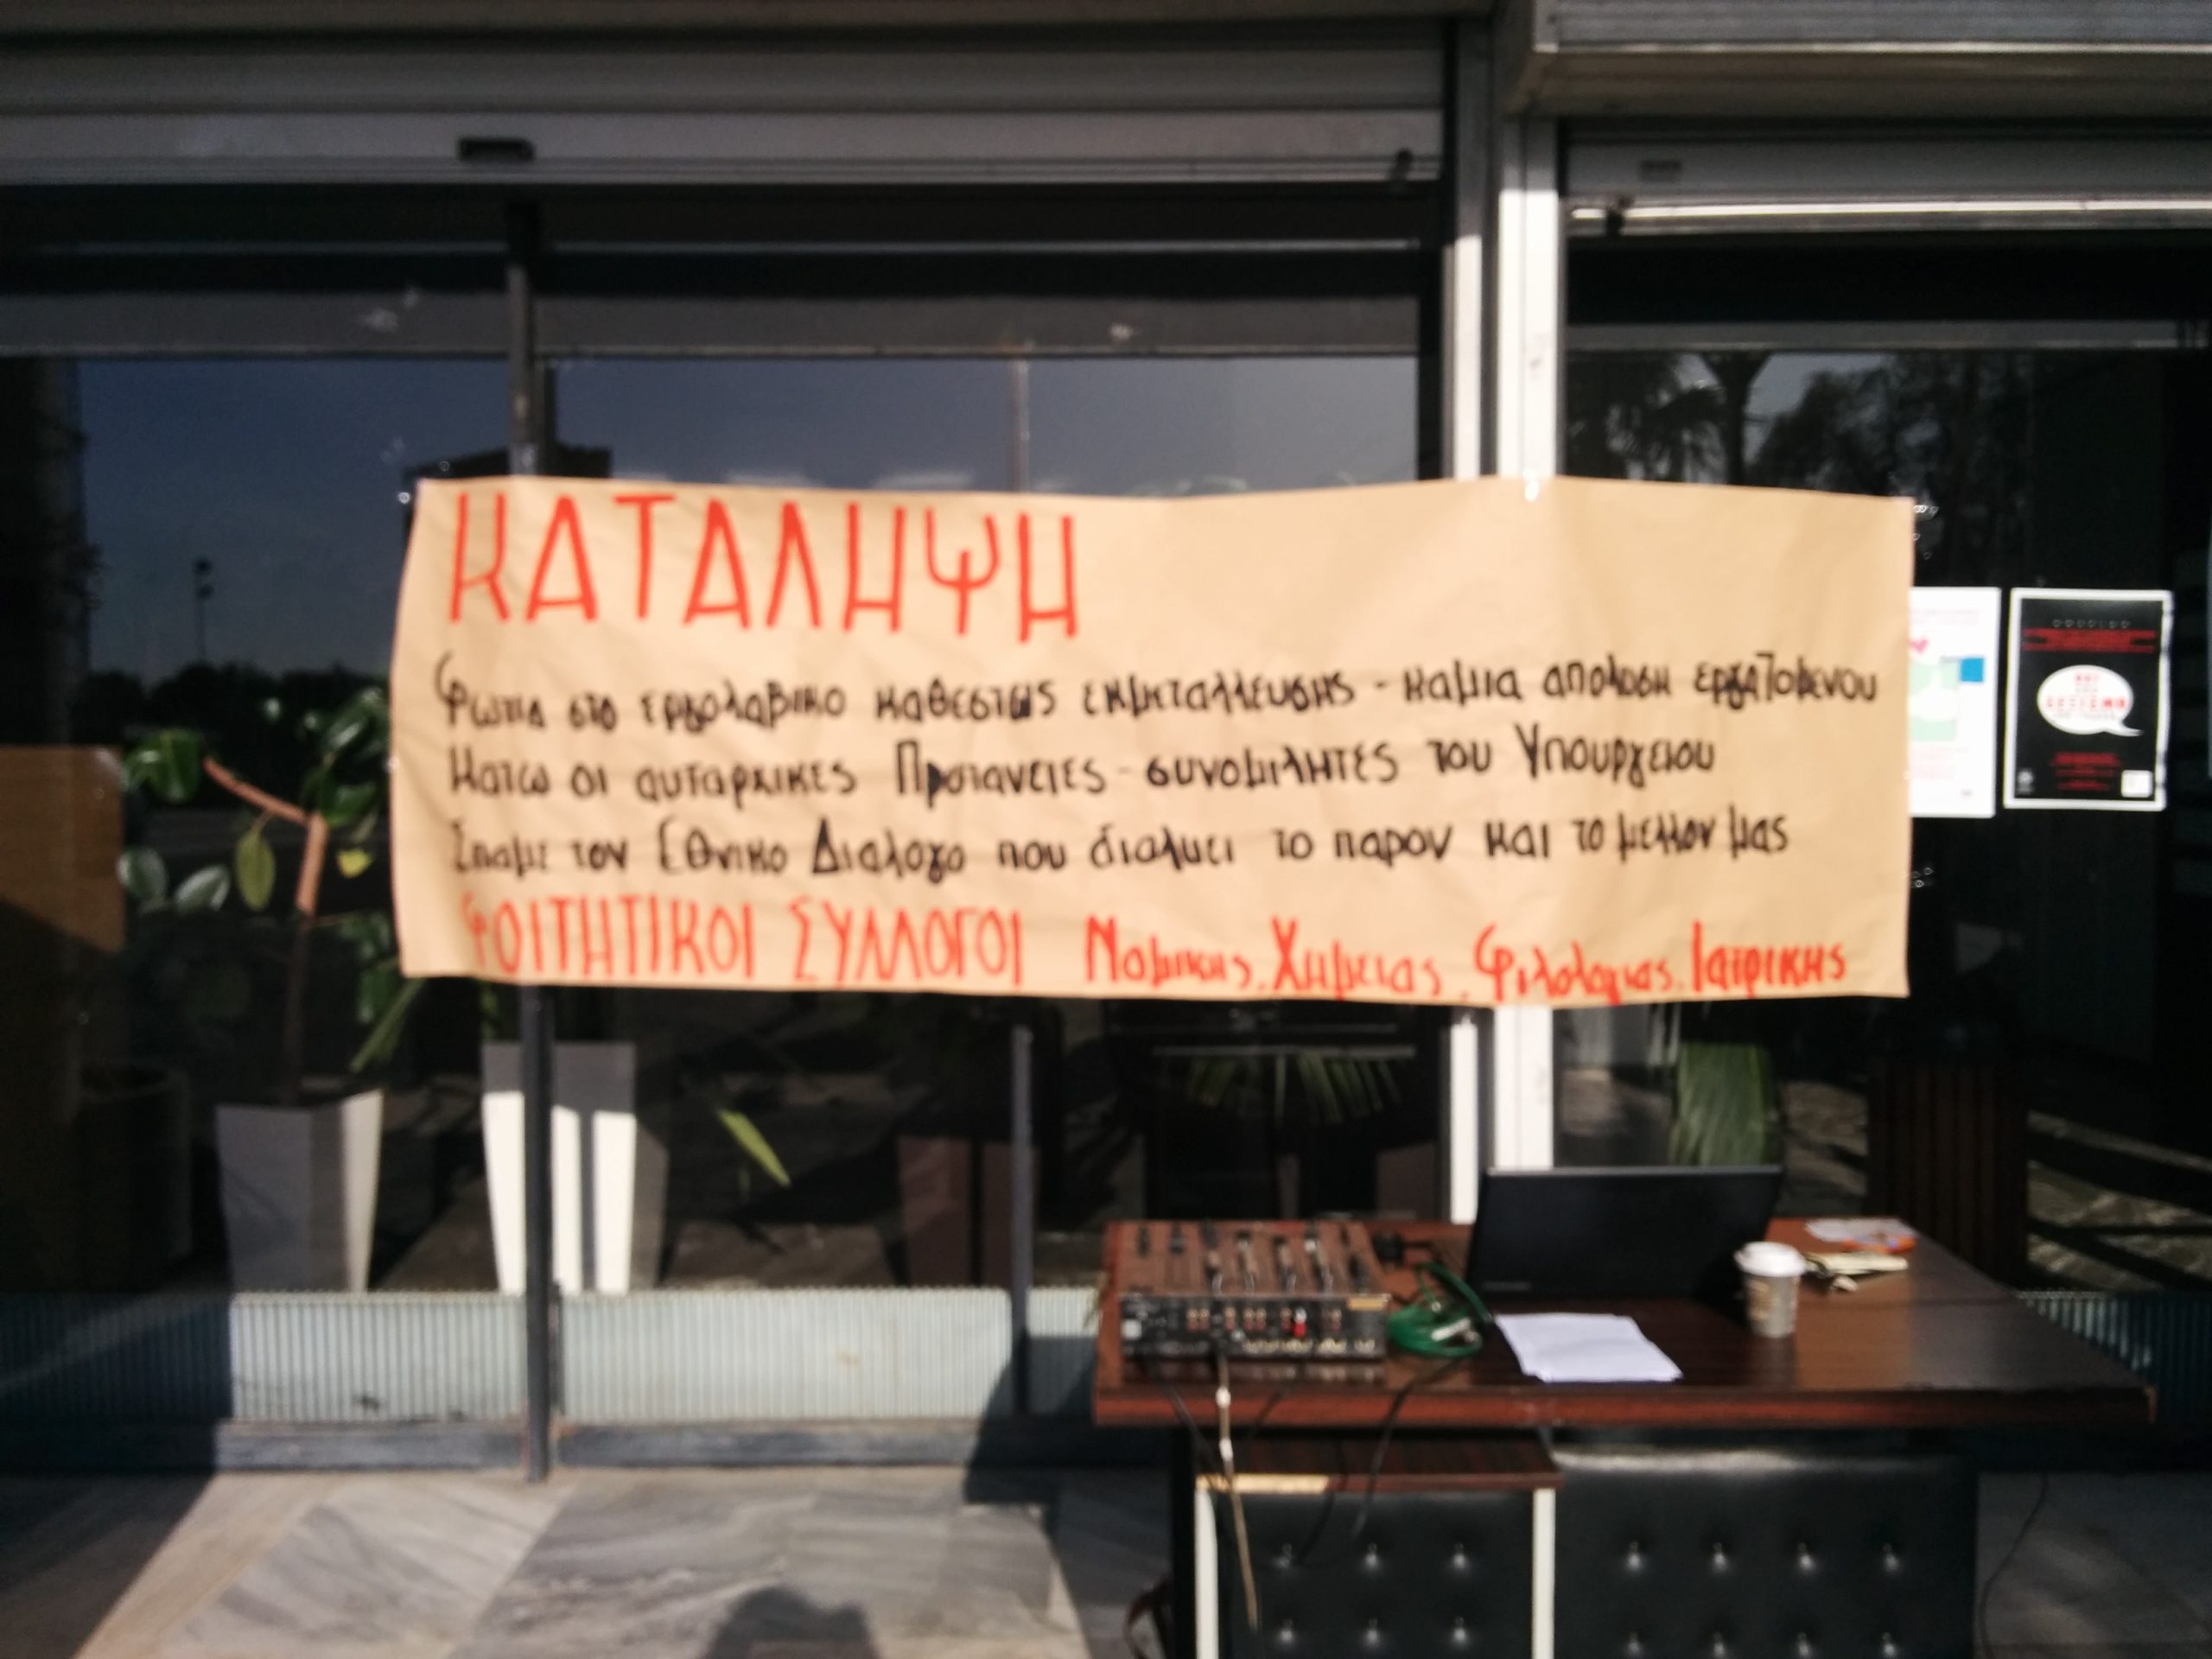 ΚΑΤΑΛΗΨΗ
Φωτια στο εργολαβικο καθεστως εκμεταλλευσης - καμια απολυση εργαζομενου
Κατω οι αυταρχικες Πρυτανειες - συνομιλητές του Υπουργειου
Σπαμε τον Εθνικο Διαλογο που διαλυει το παρον και το μελλον μας
ΦΟΙΤΗΤΙΚΟΙ ΣΥΛΛΟΓΟΙ Νομικης, Χημειας, Φιλολογιας, Ιατρικης